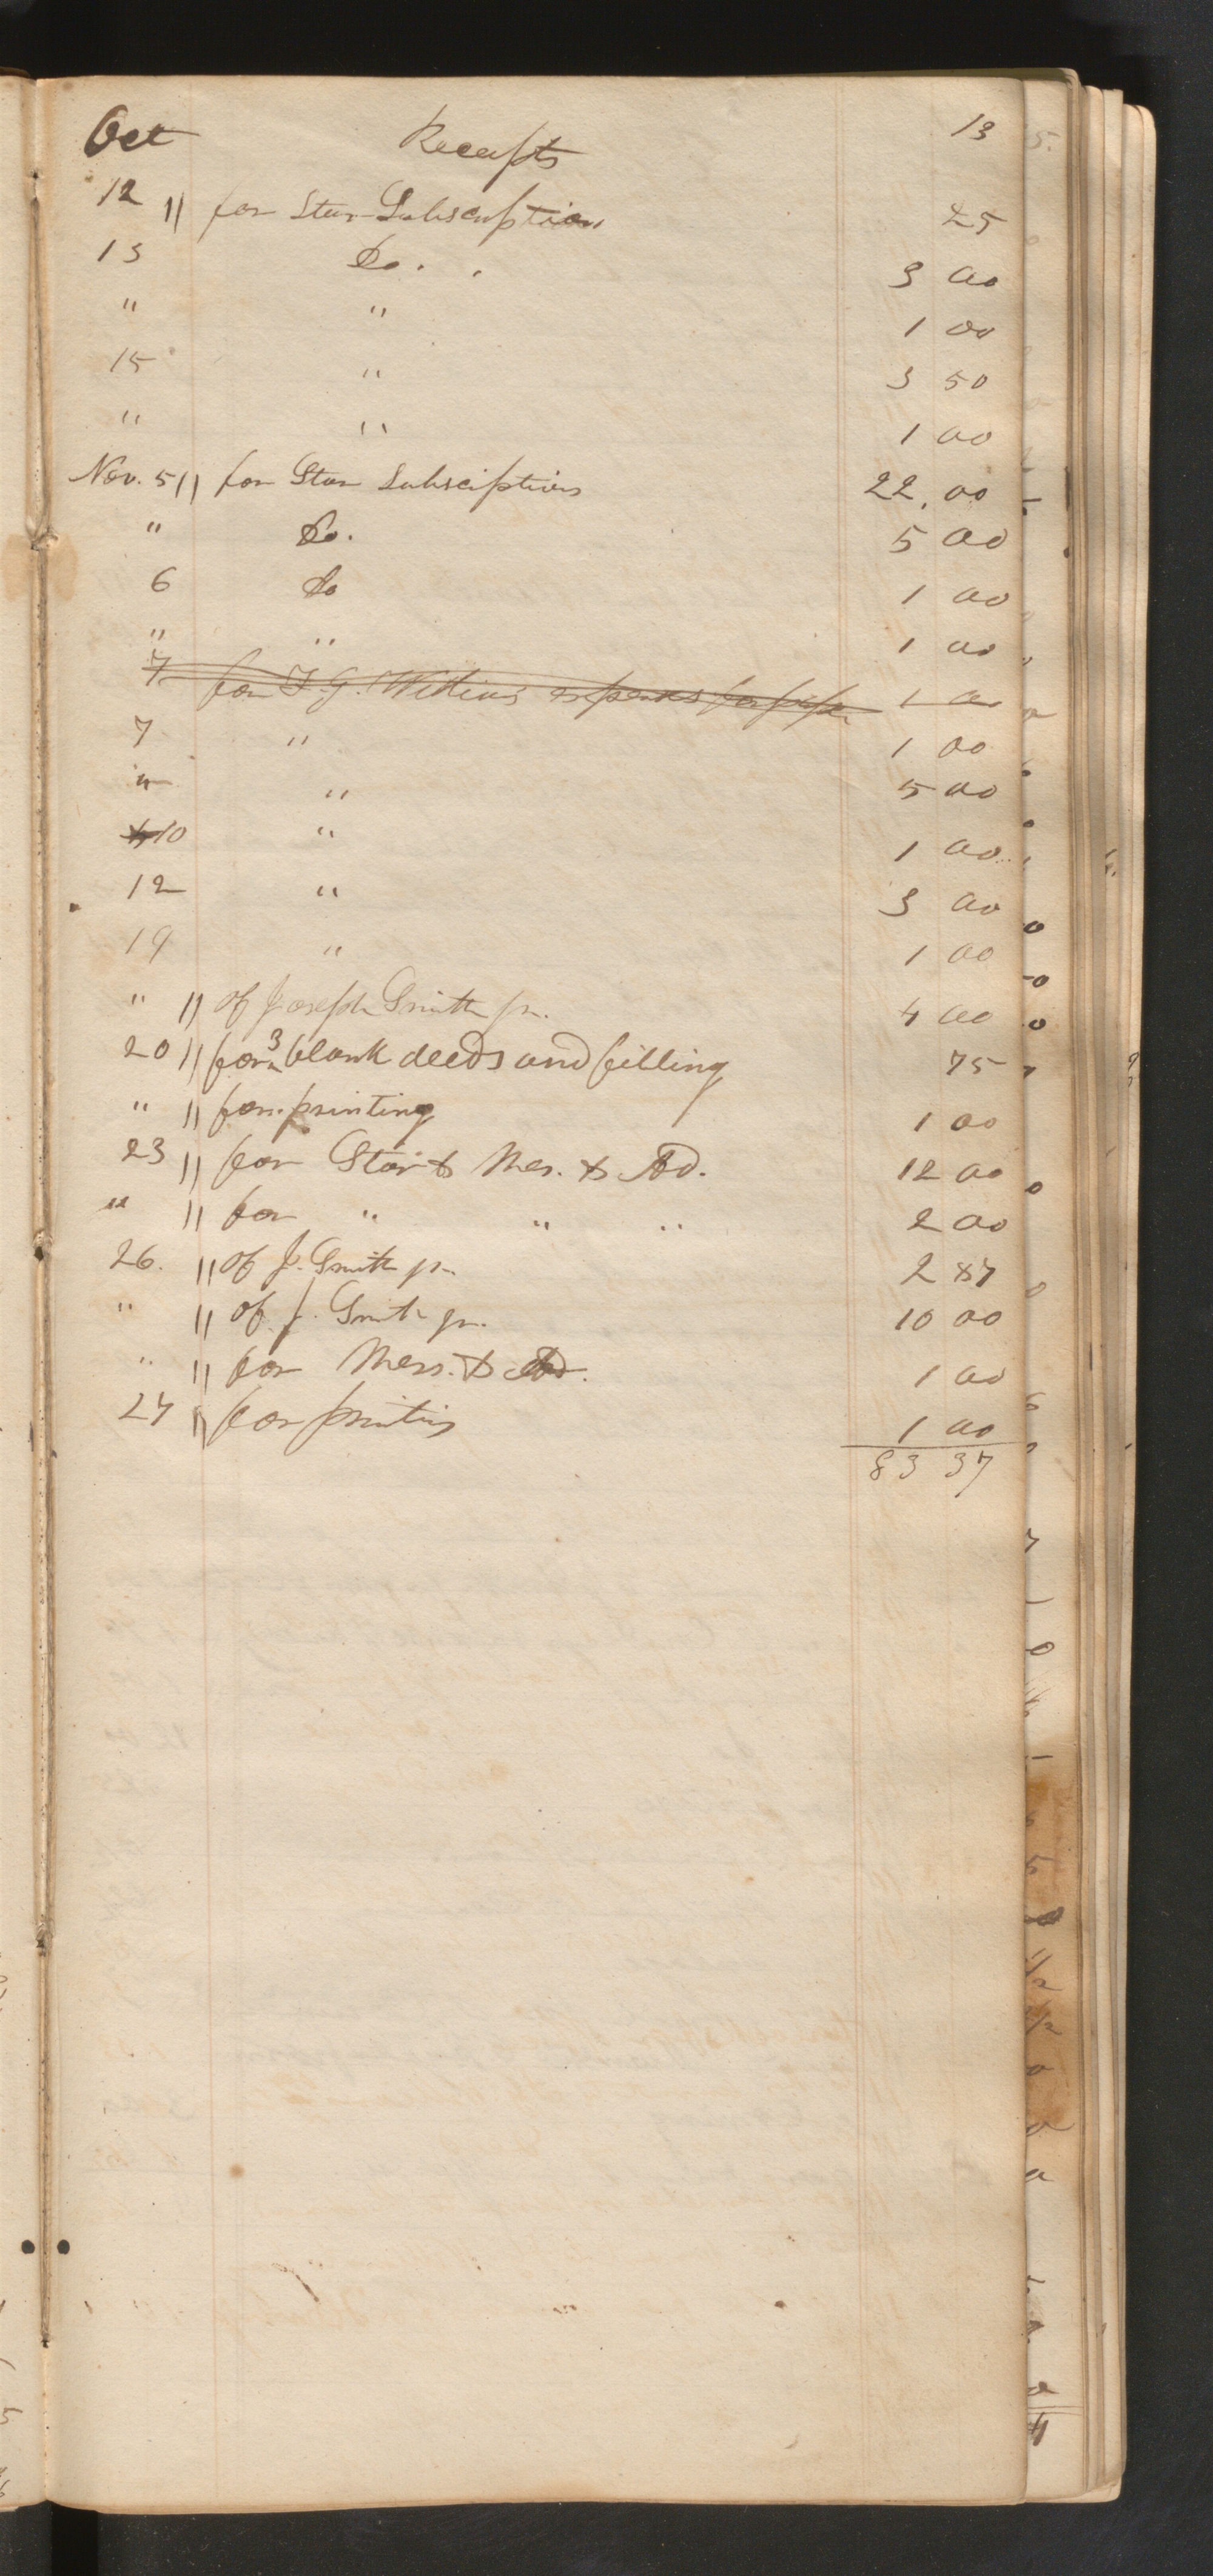 Oct Receipts 13
12 " for Star Subscription 25
13 Do. . 3 00
" " 1 00
15 " 3 50
" " 1 00
Nov. 5 " for Star Subsciptions 22. 00
" Do. 5 00
6 Do 1 00
" " 1 00
7 for F. G. Williams expenses for paper 1 00
7 " 1 00
" " 5 00
10 " 1 00
12 " 3 00
19 " 1 00
" " of Joseph Smith jr. 4 00
20 " for 3 blank deeds and filling 75
" " for printing 1 00
23 " for Star & Mes. & Ad. 12 00
" " for " " " 2 00
26. " of J. Smith jr. 2 87
" " of J. Smith jr. 10 00
" " for Mess. & Ad. 1 00
27 " for printing 1 00
83 37